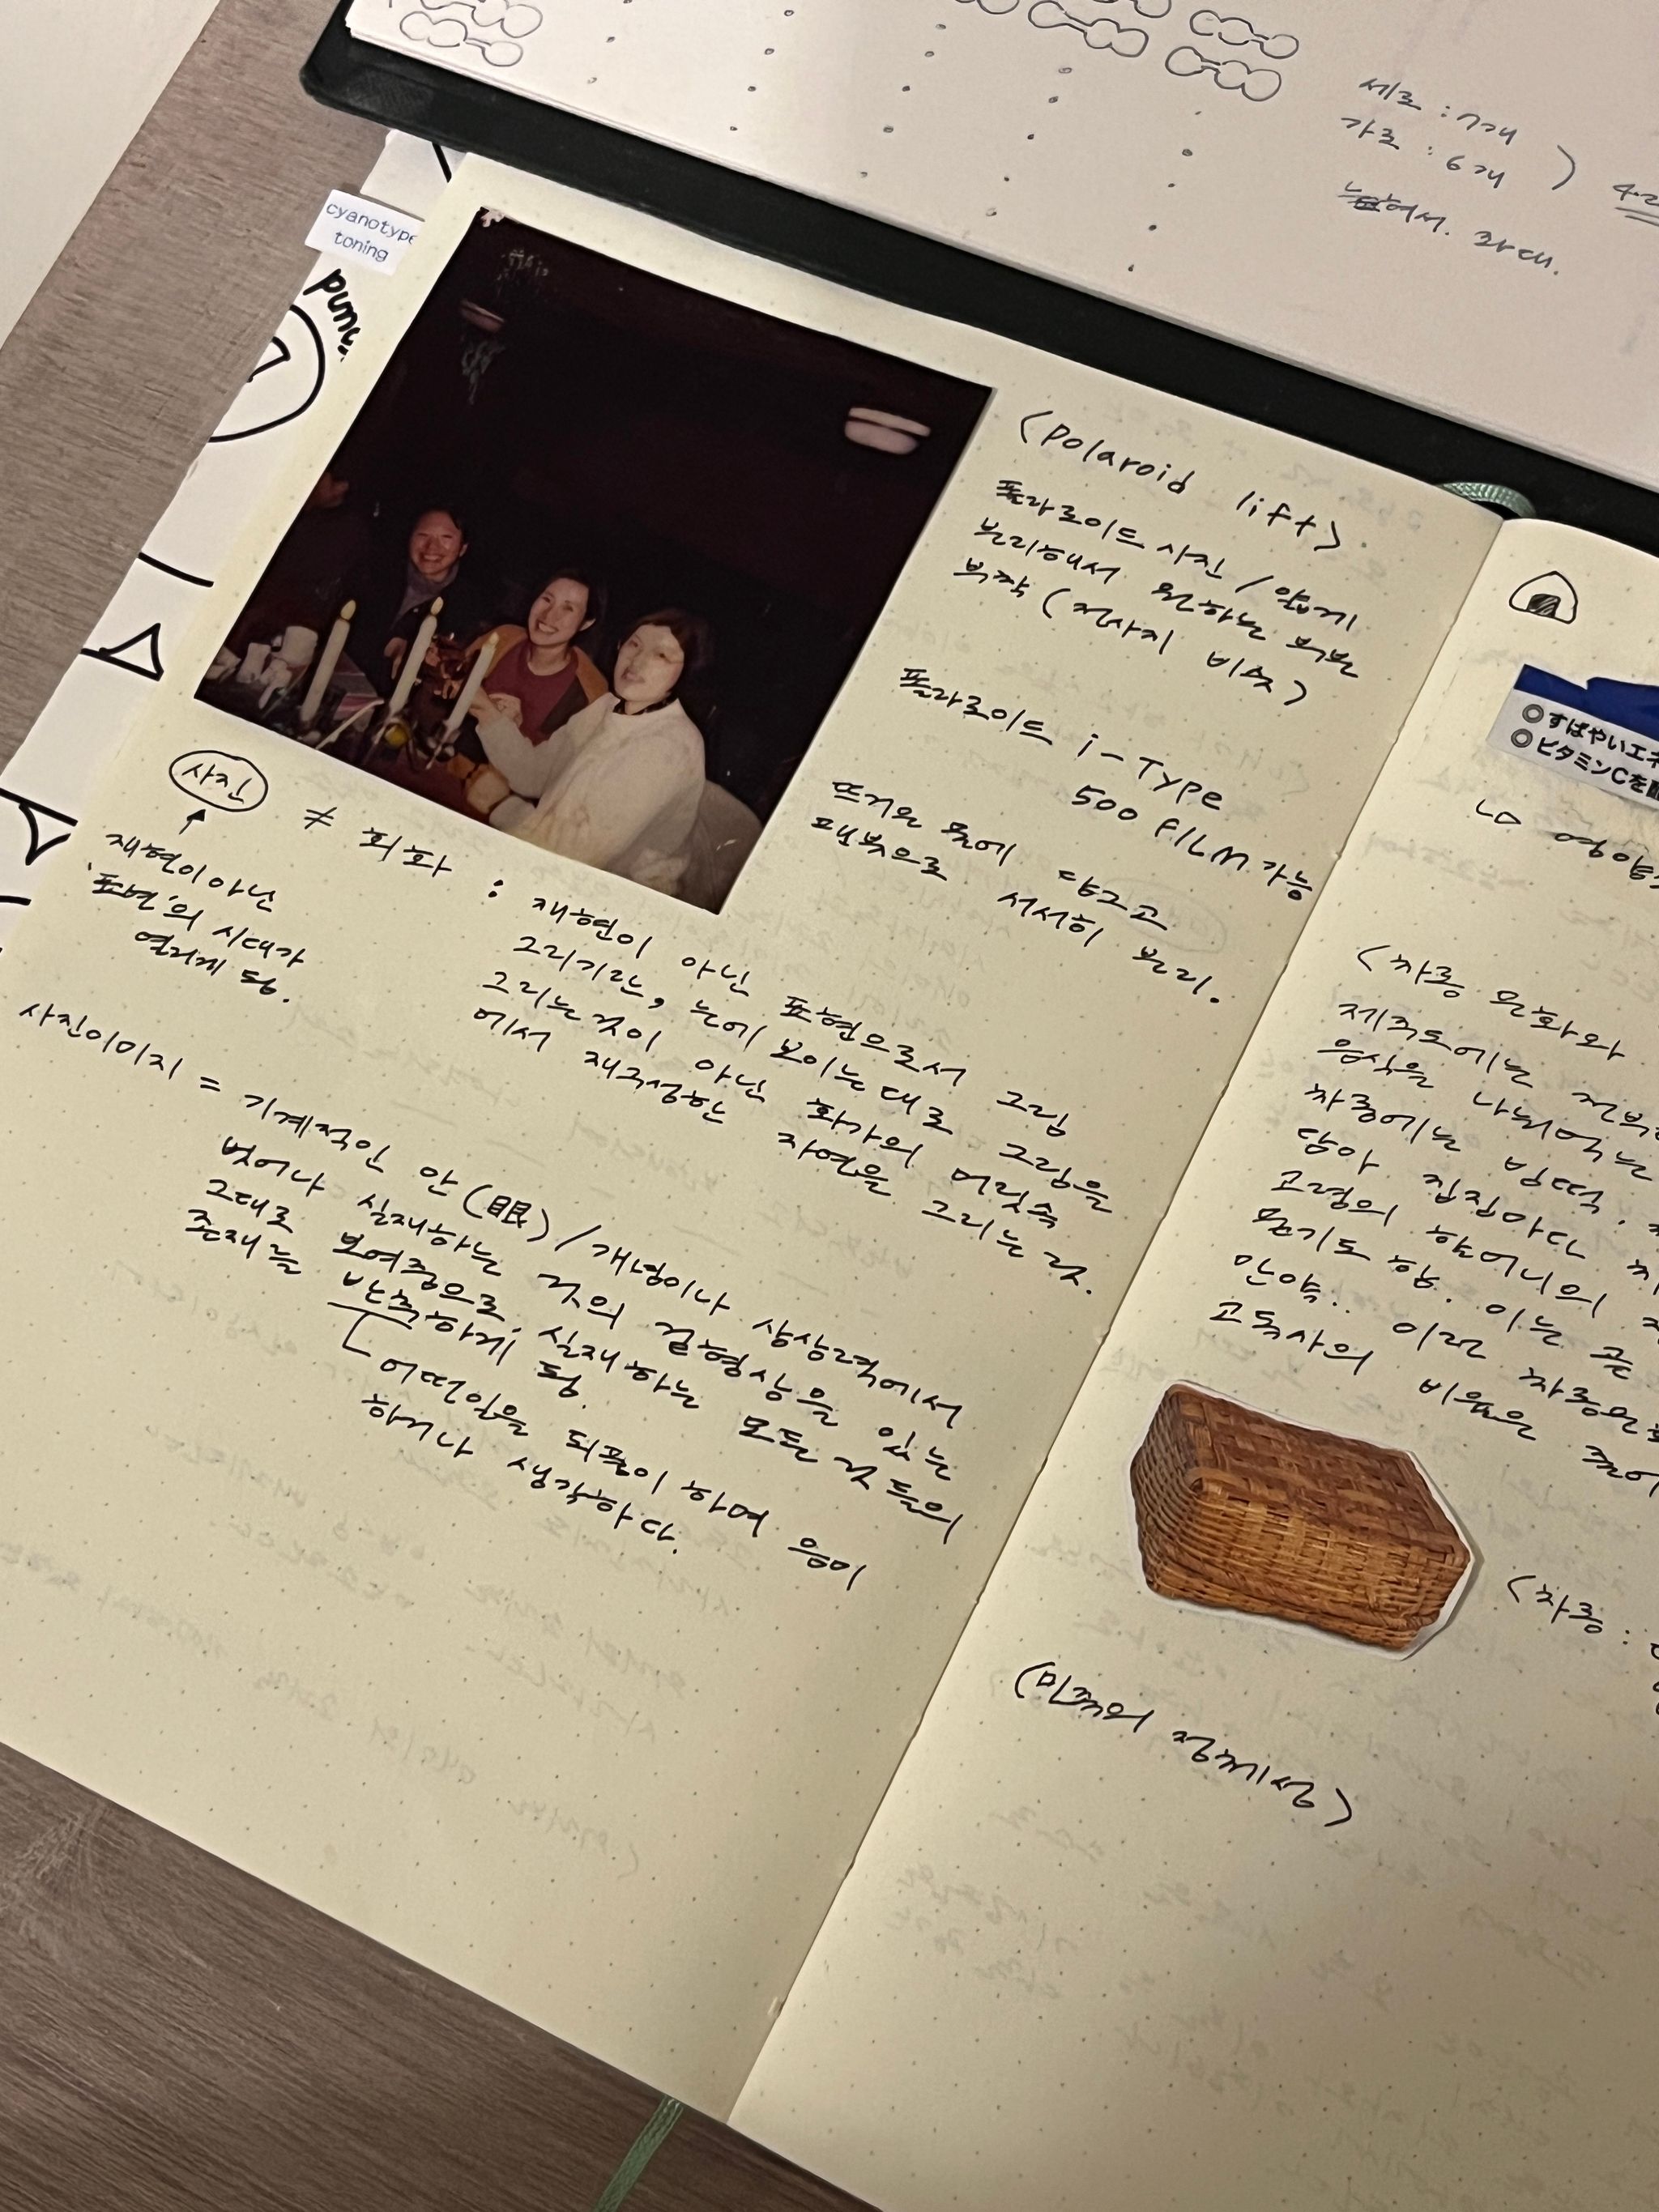 세로 : 7개
가로 : 6개
cyanotype
toning
<polaroid lift>
폴라로이드 사진 / 얇게
분리해서 원하는 부분
부착 (전사지 비슷)
폴라로이드 i-Type
500 FILM 가능
뜨거운 물에 담그고
팬북으로 서서히 분리.
사진 ≠ 회화 : 재현이 아닌 표현으로서 그림
그리기란, 눈에 보이는대로 그림을
그리는것이 아닌 화가의 머릿속
에서 재구성한 자연을 그리는 것.
재현이 아닌
'표현'의 시대가
열리게 됨.
사진이미지 = 기계적인 안(眼) / 개념이나 상상력에서
벗어나 실재하는 것의 겉형상을 있는
그대로 보여줌으로, 실재하는 모든 것들의
존재를 반추하게 됨.
어떤일을 되풀이 하며 음미
하거나 생각하다.
すばやいエネ
ビタミンCを配
↳ 영양
<차롱 문화와
제주도에는
음식을 나눠먹는
차롱에는 빙떡.
담아 집집마다
고령의 할머니의
묻기도 함. 이는 곧
만약.. 이런 차롱문화
고독사의 비율은 줄어
<차롱 :
(민족의 정체성)